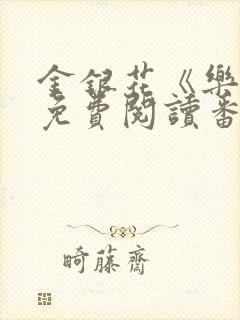 金銀花《樂
免費閱讀番
畸藤齋